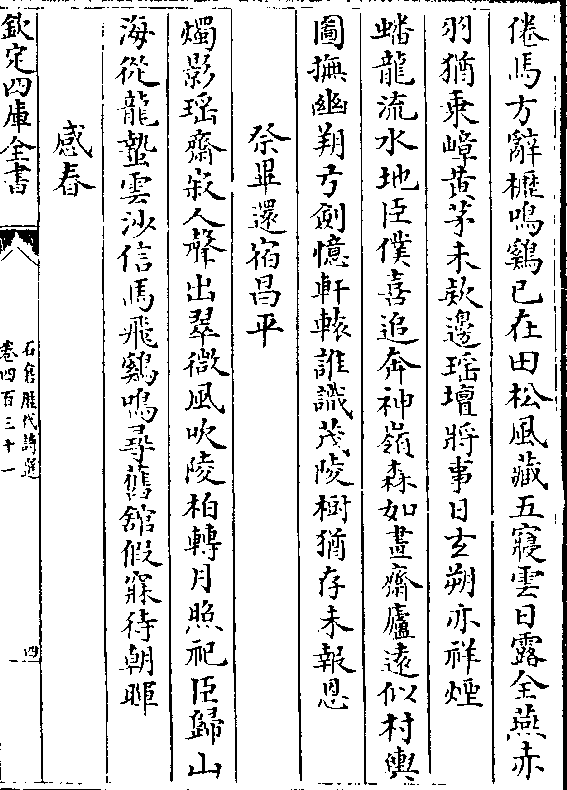 倦馬方辭櫪鳴鷄已在田松風藏五寢雲日露全燕赤
羽猶乘嶂黄茅未欵邊瑶壇將事日玄朔亦祥煙
蟠龍流水地臣僕喜追奔神嶺森如畫齋廬遠似村輿
圖撫幽朔弓劍憶軒轅誰識茂陵樹猶存未報恩
祭畢還宿昌平
燭影瑶齋寂人聲出翠微風吹陵柏轉月照祀臣歸山
海從龍蟄雲沙信馬飛鷄鳴尋舊舘假寐待朝暉
感春
欽定四庫全書
石倉歷代詩選
卷四百三十一
四